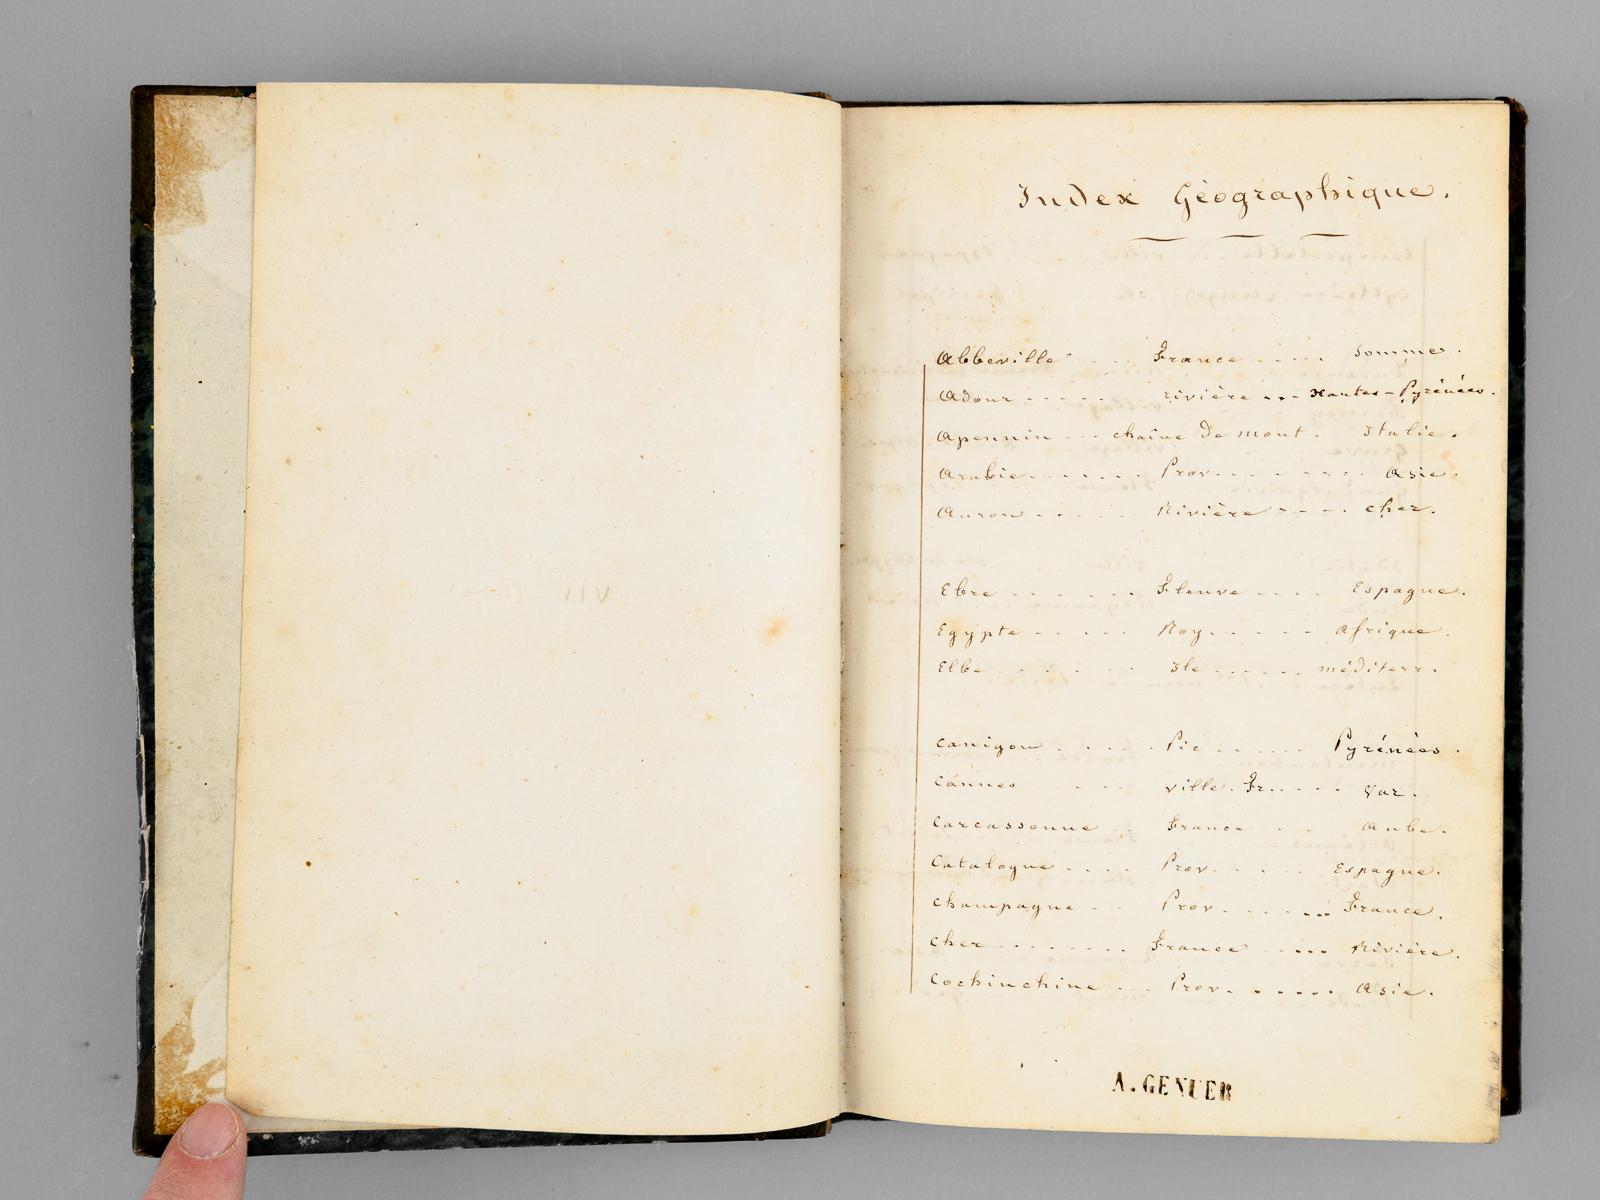 Index Géographique.
Abbeville . . . France . . . . . Somme.
Adour . . . . . rivière . . . Hautes-Pyrénées.
Apennin . . . chaîne de mont. Italie.
Arabie . . . . . . Prov. . . . . . . . Asie.
Auron . . . . . Rivière . . . . cher.
Ebre . . . . . . Fleuve . . . . Espagne.
Egypte . . . . . Roy. . . . . . Afrique.
Elbe . . . . . . Ile . . . . . . méditerr.
Canigou . . . . . Pic . . . . . . Pyrénées.
Cannes . . . ville. Fr. . . . . Var.
Carcassonne . France . . . Aube.
Catalogne . . . . Prov. . . . . Espagne.
Champagne . . Prov. . . . . . . France.
Cher . . . . . . . . France . . . . Rivière.
Cochinchine . . . Prov. . . . . . . Asie.
A. GENUER